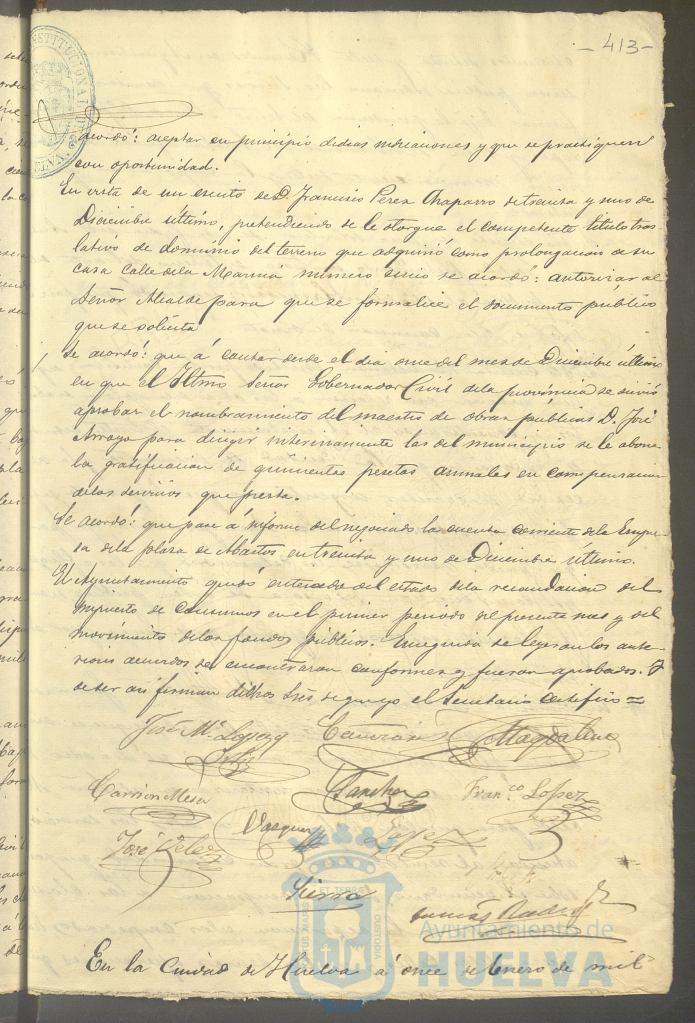 - 413 -
acordó: aceptar en principio dichas indicaciones y que se practiquen
con oportunidad.
En vista de un escrito de D. Francisco Perez Chaparro de treinta y uno de
Diciembre último, pretendiendo se le otorgue el competente título tras-
lativo de dominio del terreno que adquirió como prolongacion de su
casa Calle de la Marina número cinco se acordó: autorizar al
Señor Alcalde para que se formalice el documento público
que se solicita
Se acordó: que á contar desde el dia once del mes de Diciembre último
en que el Iltmo Señor Gobernador Civil de la provincia se sirvió
aprobar el nombramiento del maestro de obras publicas D. José
Arroyo para dirigir interinamente las del municipio se le abone
la gratificacion de quinientas pesetas anuales en compensacion
de los servicios que presta.
Se acordó: que pase á informe del negociado la cuenta corriente de la Empre-
sa de la plaza de Abastos en treinta y uno de Diciembre último.
El Ayuntamiento quedó enterado del estado de la recaudacion del
impuesto de Consumos en el primer periodo del presente mes y del
movimiento de los fondos publicos. Enseguida se leyeron los ante-
riores acuerdos se encontraron conformes y fueron aprobados. Y
de ser asi firman dichos Sres de que yo el Secretario certifico =
José Mª Lopez
Magdalena
Carrion Mesa
Sanchez
Fran.co Lopez
José Velez
Vazquez
Lopez
Sierra
En la Ciudad de Huelva á once de Enero de mil
Ayuntamiento de
HUELVA